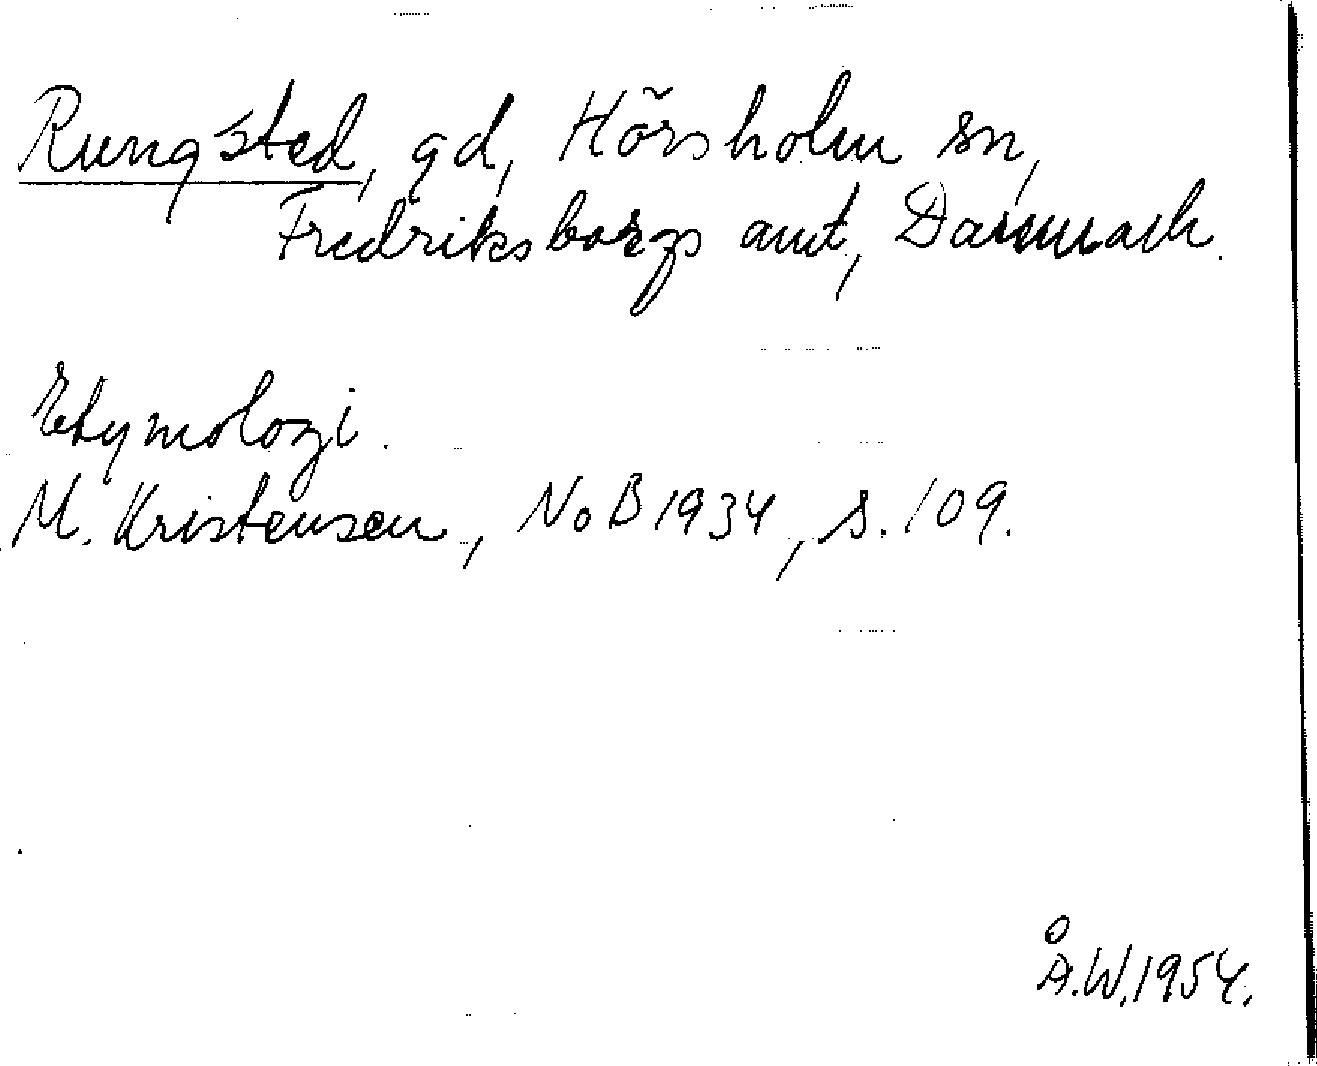 Rungsted, gd, Hörsholm sn,
Fredriksborgs amt, Danmark.
Etymologi.
M. Kristensen, NoB 1934, s. 109.
Å.W. 1954.